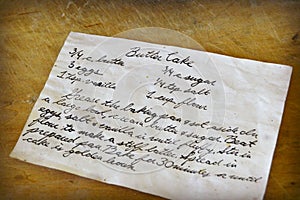 Butter Cake
3/4 c butter 3/4 c sugar
3 eggs 1/4 tsp salt
1 tsp vanilla 1 cup flour
Grease the baking pan and set aside. In
a large bowl, cream butter & sugar. Beat
eggs, salt & vanilla until fluffy. Stir in
flour to make a stiff batter. Spread in
prepared pan. Bake for 30 minutes or until
cake is golden brown.